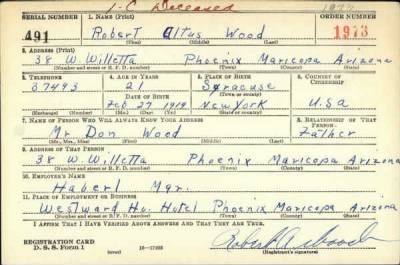 1-C Deceased
SERIAL NUMBER 1. NAME (Print) ORDER NUMBER
491 Robert Altus Wood 1973
(First) (Middle) (Last)
2. ADDRESS (Print)
38 W. Willetta Phoenix Maricopa Arizona
(Number and street or R. F. D. number) (Town) (County) (State)
3. TELEPHONE 4. AGE IN YEARS 5. PLACE OF BIRTH 6. COUNTRY OF CITIZENSHIP
37493 21 Syracuse
DATE OF BIRTH (Town or county)
Feb 27 1919 New York U.S.A
(Mo.) (Day) (Yr.) (State or country)
7. NAME OF PERSON WHO WILL ALWAYS KNOW YOUR ADDRESS 8. RELATIONSHIP OF THAT PERSON
Mr. Don Wood Father
(Mr., Mrs., Miss) (First) (Middle) (Last)
9. ADDRESS OF THAT PERSON
38 W. Willetta Phoenix Maricopa Arizona
(Number and street or R. F. D. number) (Town) (County) (State)
10. EMPLOYER'S NAME
Mgr.
11. PLACE OF EMPLOYMENT OR BUSINESS
Westward Ho. Hotel Phoenix Maricopa Arizona
(Number and street or R. F. D. number) (Town) (County) (State)
I AFFIRM THAT I HAVE VERIFIED ABOVE ANSWERS AND THAT THEY ARE TRUE.
REGISTRATION CARD
D. S. S. Form 1 16—17105 Robert A. Wood
(over) (Registrant's signature)